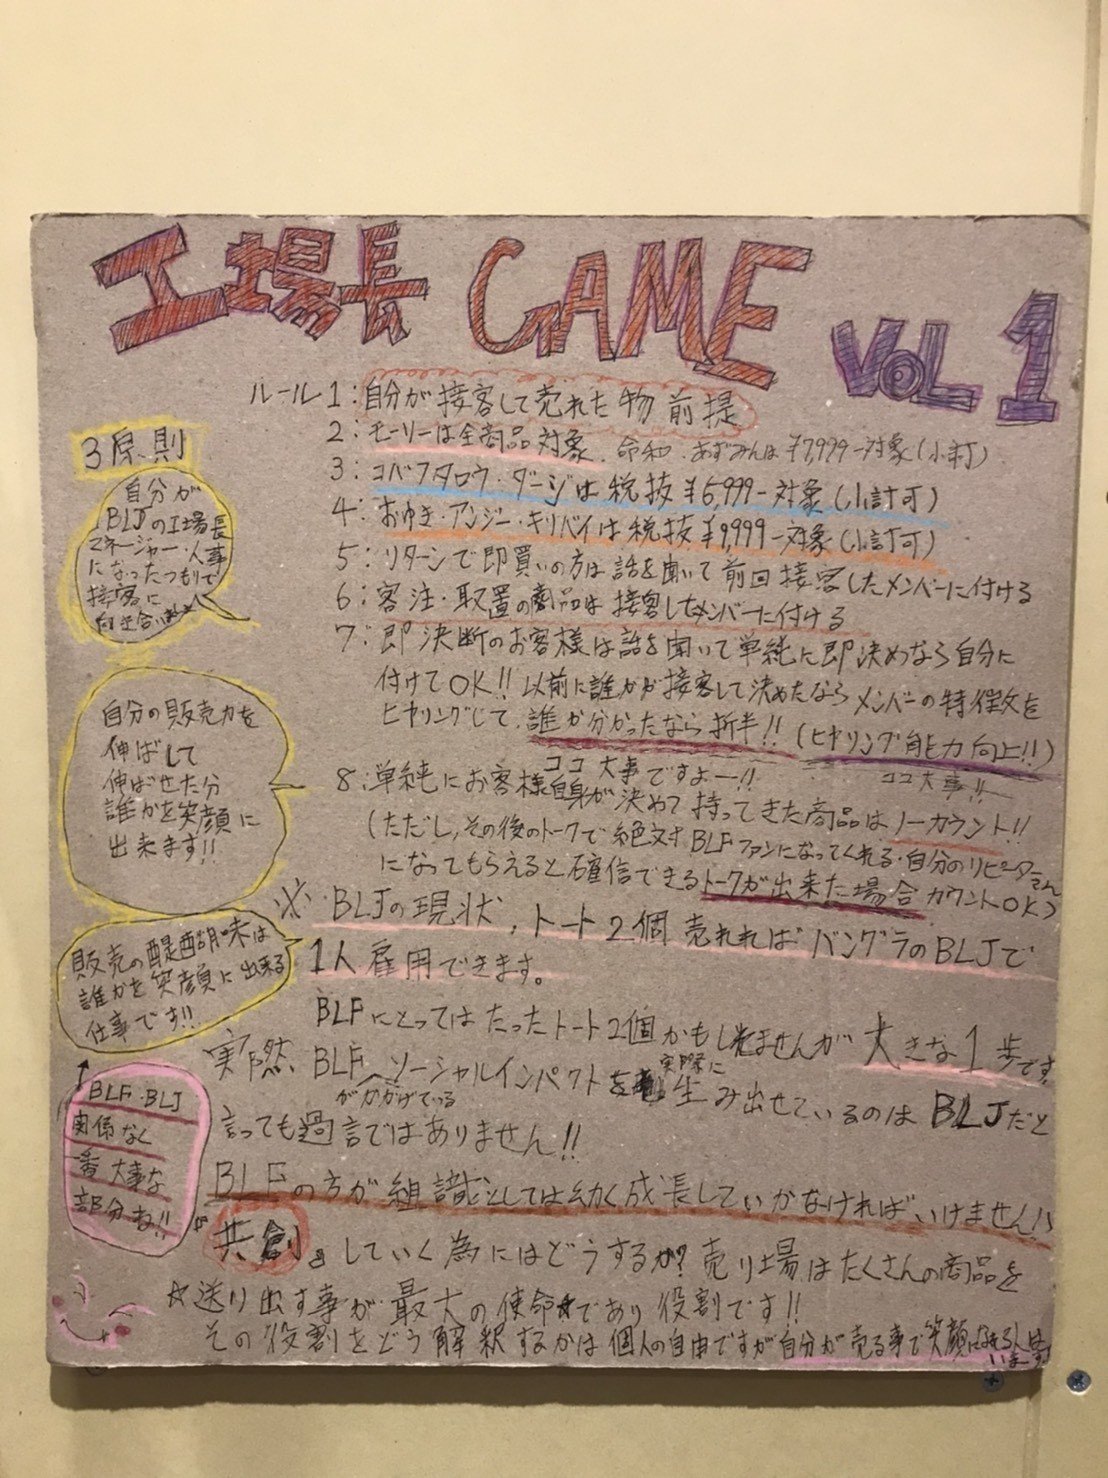 工場長 GAME VOL 1
ルール1：自分が接客して売れた物前提
2：モーリーは全商品対象、命和・あずみんは¥7,999-対象(小計)
3：コバフタロウ・ダージは税抜¥6,999-対象(小計可)
4：おゆき・アンジー・キリバイは税抜¥9,999-対象(小計可)
5：リターンで即買いの方は話を聞いて前回接客したメンバーに付ける
6：客注・取置の商品は接客したメンバーに付ける
7：即決断のお客様は話を聞いて単純に即決めなら自分に
付けてOK!!以前に誰かが接客して決めたならメンバーの特徴を
ヒヤリングして、誰か分かったなら折半!!(ヒヤリング能力向上!!)
ココ大事ですよー!!
ココ大事!!
8：単純にお客様自身が決めて持ってきた商品はノーカウント!!
(ただし、その後のトークで絶対BLFファンになってくれる・自分のリピーターさん
になってもらえると確信できるトークが出来た場合カウントOK)
3原則
自分が
BLJの工場長
マネージャー・人事
になったつもりで
接客に
自分の販売力を
伸ばして
伸ばせた分
誰かを笑顔に
出来ます!!
販売の醍醐味は
誰かを笑顔に出来る
仕事です!!
BLF・BLJ
関係なく
一番大事な
部分ね!!
※BLJの現状、トート2個売れればバングラのBLJで
1人雇用できます。
BLFにとってはたったトート2個かもしれませんが大きな1歩です。
実際、BLFがかかげているソーシャルインパクトを実際に生み出せているのはBLJだと
言っても過言ではありません!!
BLFの方が組識としては幼く成長していかなければいけません!!
共創していく為にはどうするか?売り場はたくさんの商品を
☆送り出す事が最大の使命☆であり役割です!!
その役割をどう解釈するかは個人の自由ですが自分が売る事で笑顔になれる人はいます